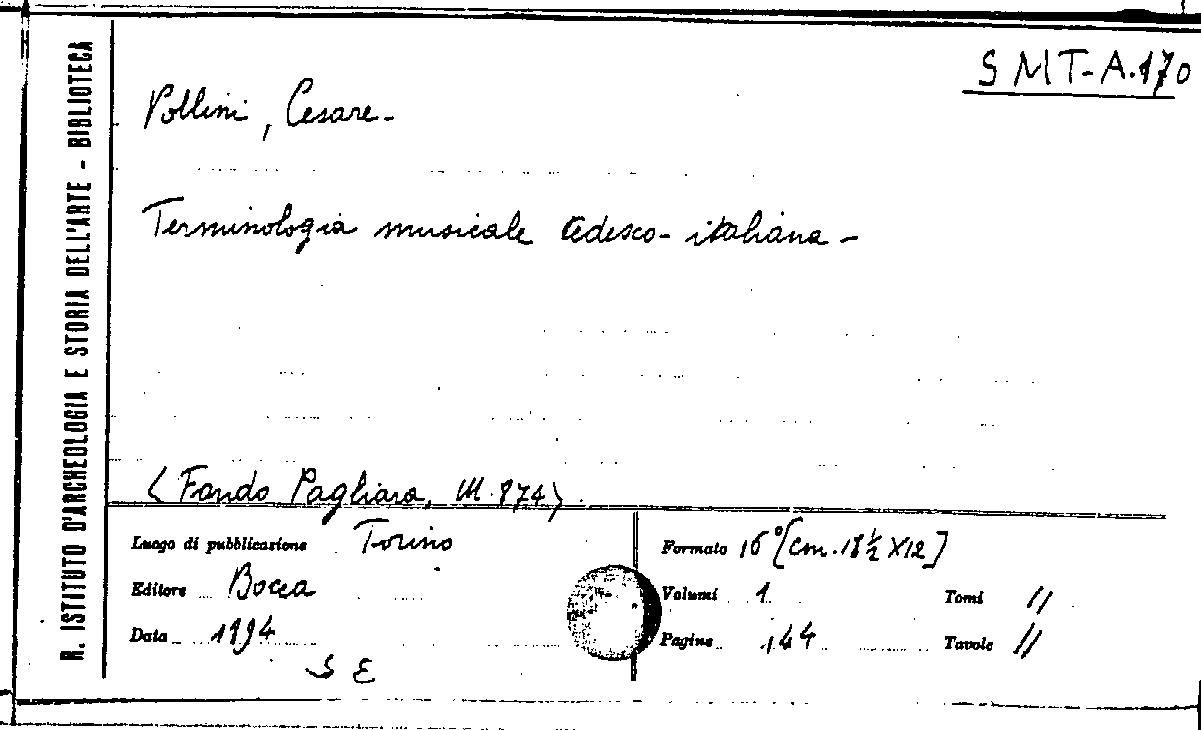 R. ISTITUTO D'ARCHEOLOGIA E STORIA DELL'ARTE - BIBLIOTECA
S M T-A.170
Pollini, Cesare-
Terminologia musicale tedesco-italiana-
<Fondo Pagliara, M. 874>
Luogo di pubblicazione Torino
Editore Bocca
Data 1894
S E
Formato 16° [cm. 18 ½ X 12]
Volumi 1 Tomi //
Pagine 144 Tavole //